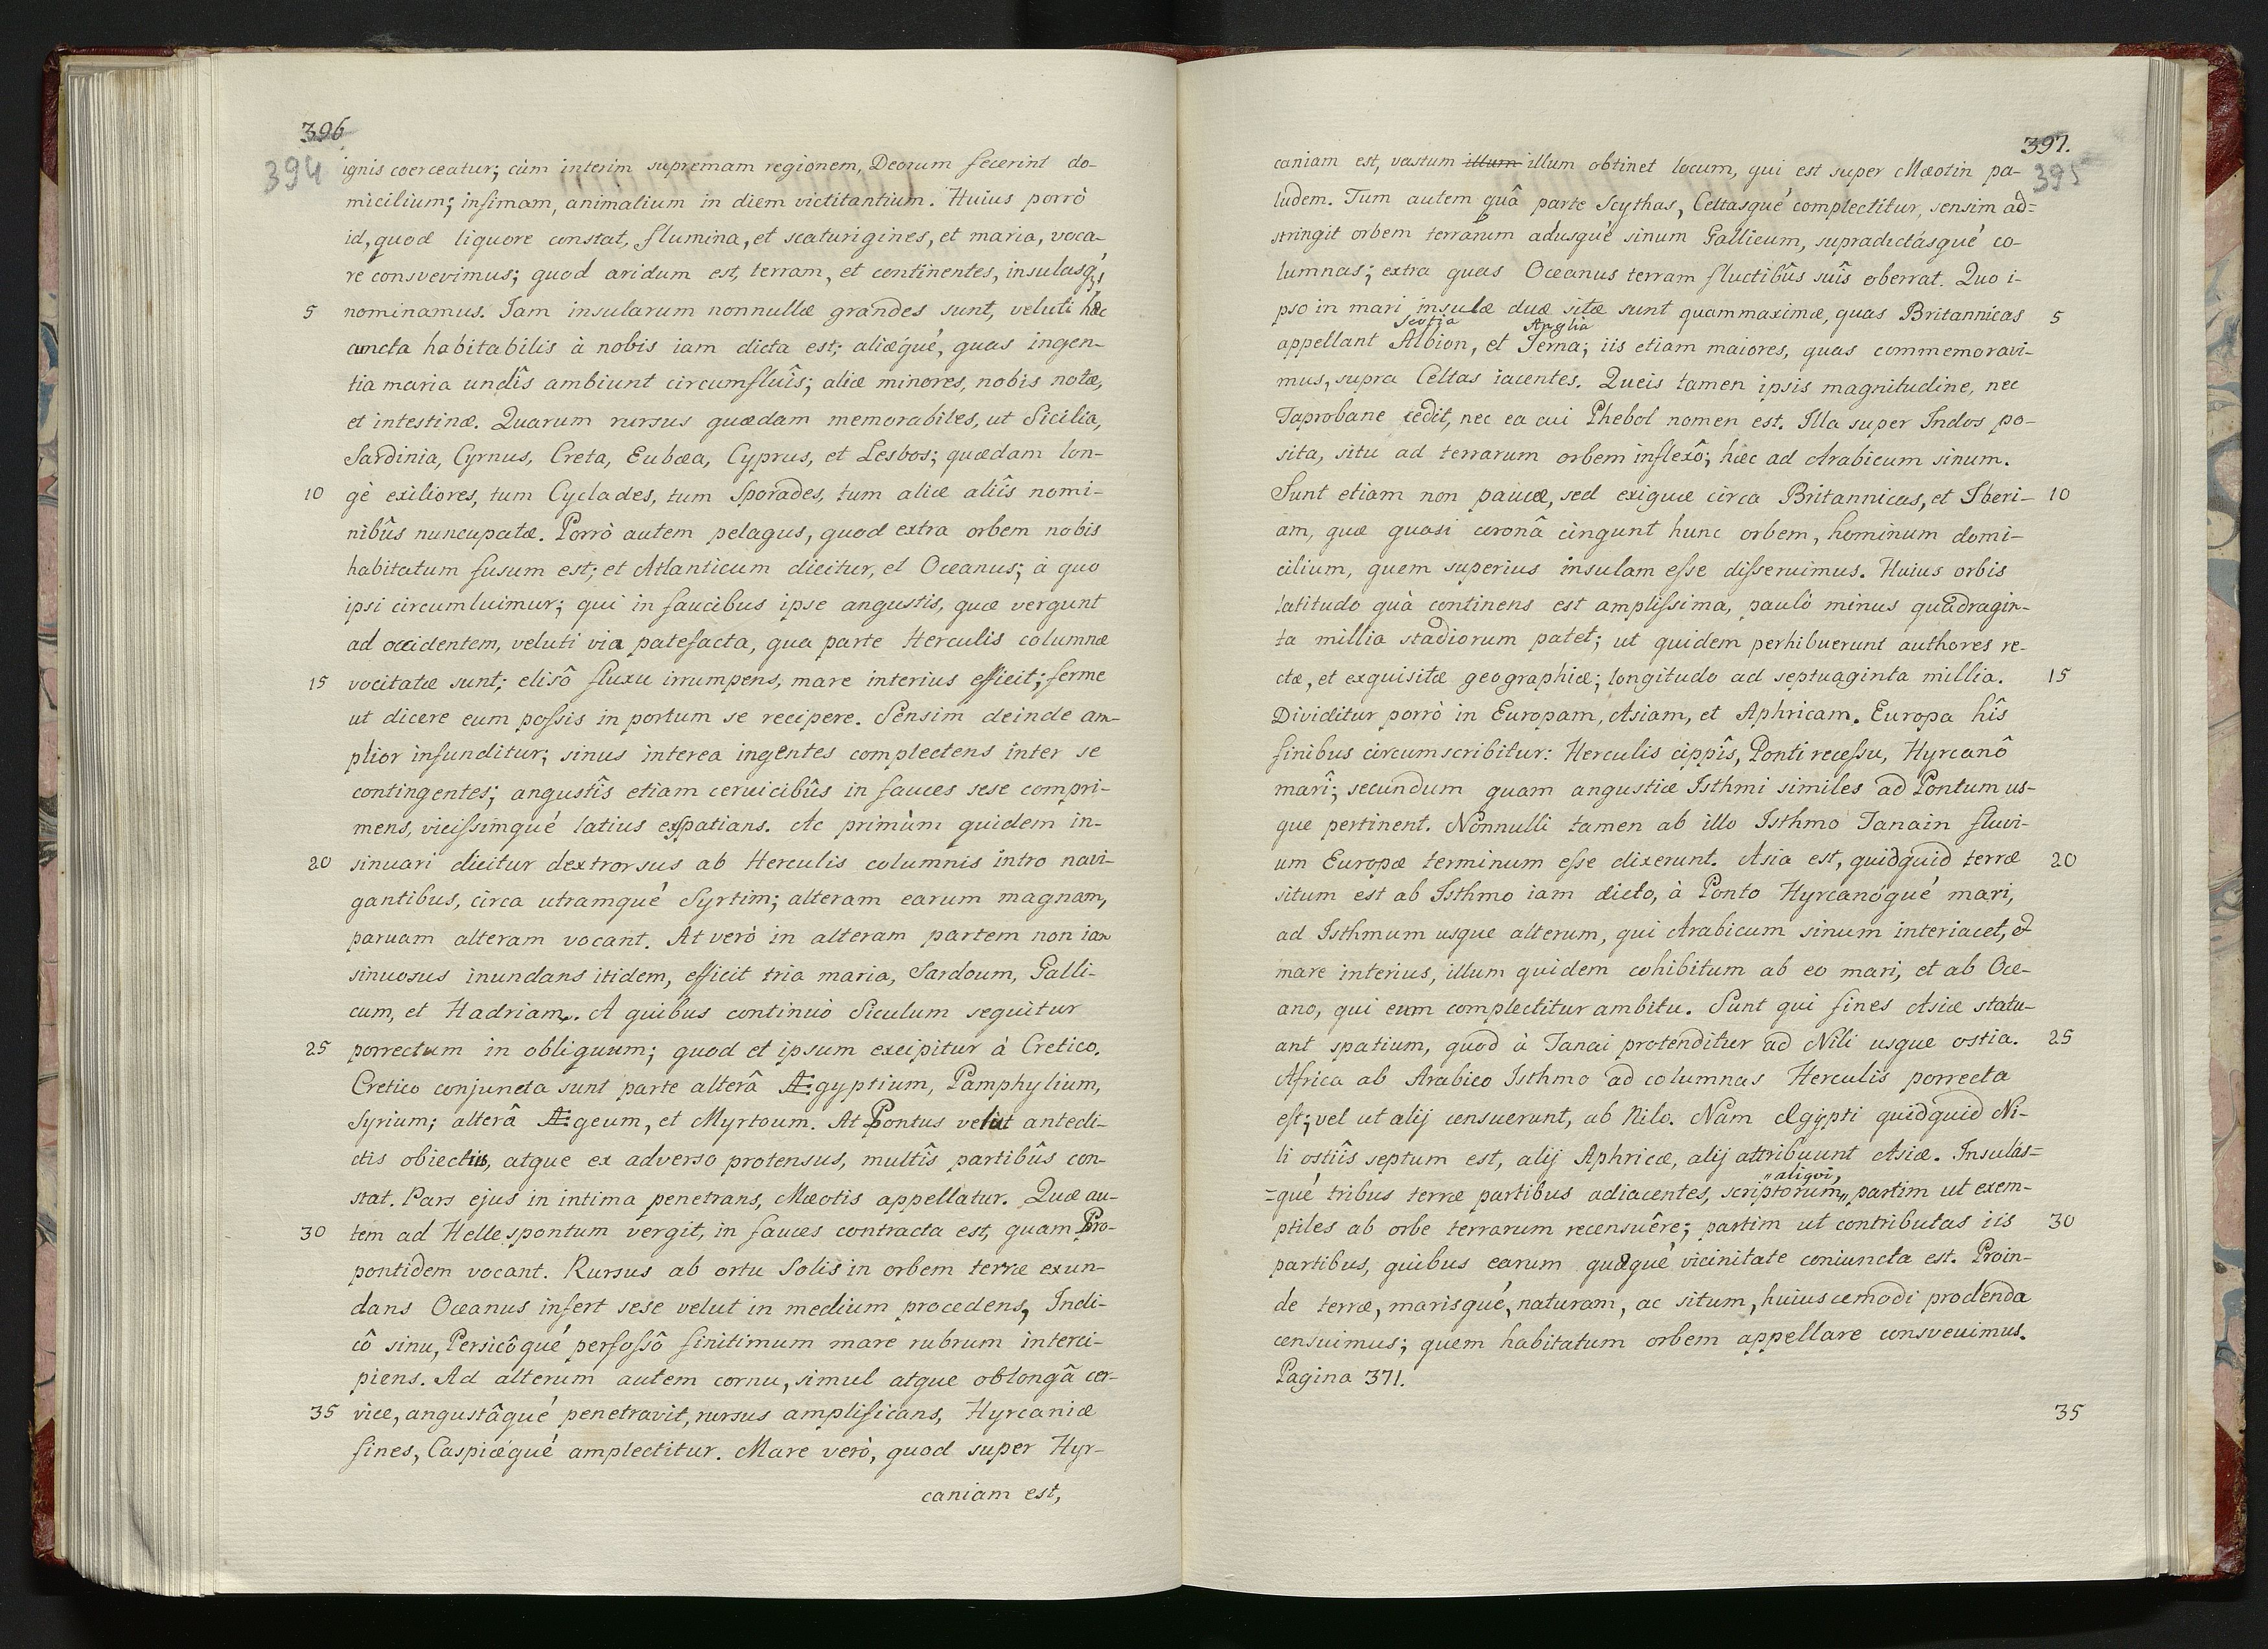 396
394
ignis coerceatur; cùm interim supremam regionem, Deorum fecerint do-
micilium; infimam, animalium in diem victitantium. Huius porrò
id, quod liquore constat, flumina, et scaturigines, et maria, voca-
re consvevimus; quod aridum est, terram, et continentes, insulasq́;
5 nominamus. Iam insularum nonnullæ grandes sunt, veluti hæc
cuncta habitabilis à nobis iam dicta est; aliæqué, quas ingen-
tia maria undîs ambiunt circumfluîs; aliæ minores, nobis notæ,
et intestinæ. Quarum rursus quædam memorabiles, ut Sicilia,
Sardinia, Cyrnus, Creta, Eubœa, Cyprus, et Lesbos; quædam lon-
10 gè exiliores, tum Cyclades, tum Sporades, tum aliæ aliîs nomi-
nibûs nuncupatæ. Porrò autem pelagus, quod extra orbem nobis
habitatum fusum est; et Atlanticum dicitur, et Oceanus; à quo
ipsi circumluimur; qui in faucibus ipse angustis, quæ vergunt
ad occidentem, veluti via patefacta, qua parte Herculis columnæ
15 vocitatæ sunt; elisô fluxu irrumpens, mare interius efficit; ferme
ut dicere eum possis in portum se recipere. Sensim deinde am-
plior infunditur; sinus interea ingentes complectens inter se
contingentes; angustîs etiam cervicibûs in fauces sese compri-
mens, vicissimqué latius exspatians. Ac primùm quidem in-
20 sinuari dicitur dextrorsus ab Herculis columnis intro navi-
gantibus, circa utramqué Syrtim; alteram earum magnam,
paruam alteram vocant. At verò in alteram partem non iam
sinuosus inundans itidem, efficit tria maria, Sardoum, Galli-
cum, et Hadriam. A quibus continuò Siculum sequitur
25 porrectum in obliquum; quod et ipsum excipitur à Cretico.
Cretico conjuncta sunt parte alterâ Ægyptium, Pamphylium,
Syrium; alterâ Ægeum, et Myrtoum. At Pontus velut antedi-
ctis obiectus, atque ex adverso protensus, multîs partibûs con-
stat. Pars ejus in intima penetrans, Mæotis appellatur. Quæ au-
30 tem ad Hellespontum vergit, in fauces contracta est, quam Pro-
pontidem vocant. Rursus ab ortu Solis in orbem terræ exun-
dans Oceanus infert sese velut in medium procedens, Indi-
cô sinu, Persicôqué perfossô finitimum mare rubrum interci-
piens. Ad alterum autem cornu, simul atque oblongâ cer-
35 vice, angustâqué penetravit, rursus amplificans, Hyrcaniæ
fines, Caspiæqué amplectitur. Mare verò, quod super Hyr-
caniam est,
397.
395
caniam est, vastum illum illum obtinet locum, qui est super Mæotin pa-
ludem. Tum autem quâ parte Scythas, Celtasqué complectitur, sensim ad=
stringit orbem terrarum adusqué sinum Gallicum, supradictásqué co-
lumnas; extra quas Oceanus terram fluctibûs suîs oberrat. Quo i-
pso in mari insulæ duæ sitæ sunt quammaximæ, quas Britannicas 5
Scotia Anglia
appellant Albion, et Ierna; iis etiam maiores, quas commemoravi-
mus, supra Celtas iacentes. Queis tamen ipsis magnitudine, nec
Taprobane cedit, nec ea cui Phebol nomen est. Illa super Indos po-
sita, situ ad terrarum orbem inflexô; hæc ad Arabicum sinum.
Sunt etiam non paucæ, sed exiguæ circa Britannicas, et Iberi- 10
am, quæ quasi coronâ cingunt hunc orbem, hominum domi-
cilium, quem superius insulam esse disseruimus. Huius orbis
latitudo quà continens est amplissima, paulò minus quadragin-
ta millia stadiorum patet; ut quidem perhibuerunt authores re-
ctæ, et exquisitæ geographiæ; longitudo ad septuaginta millia. 15
Dividitur porrò in Europam, Asiam, et Aphricam. Europa hîs
finibus circumscribitur: Herculis cippîs, Ponti recessu, Hyrcanô
marî; secundum quam angustiæ Isthmi similes ad Pontum us-
que pertinent. Nonnulli tamen ab illo Isthmo Tanain fluvi-
um Europæ terminum esse dixerunt. Asia est, quidquid terræ 20
situm est ab Isthmo iam dicto, à Ponto Hyrcanóqué mari,
ad Isthmum usque alterum, qui Arabicum sinum interiacet, et
mare interius, illum quidem cohibitum ab eo mari, et ab Oce-
ano, qui eum complectitur ambitu. Sunt qui fines Asiæ statu-
ant spatium, quod à Tanai protenditur ad Nili usque ostia. 25
Africa ab Arabico Isthmo ad columnas Herculis porrecta
est; vel ut alij censuerunt, ab Nilo. Nam Ægypti quidquid Ni-
li ostiîs septum est, alij Aphricæ, alij attribuunt Asiæ. Insulás=
„aliqvi,
=qué tribus terræ partibus adiacentes, scriptorum„ partim ut exem-
ptiles ab orbe terrarum recensuêre; partim ut contributas iis 30
partibus, quibus earum quæqué vicinitate coniuncta est. Proin-
de terræ, marisqué, naturam, ac situm, huiuscemodi prodenda
censuimus; quem habitatum orbem appellare consvevimus.
Pagina 371.
35